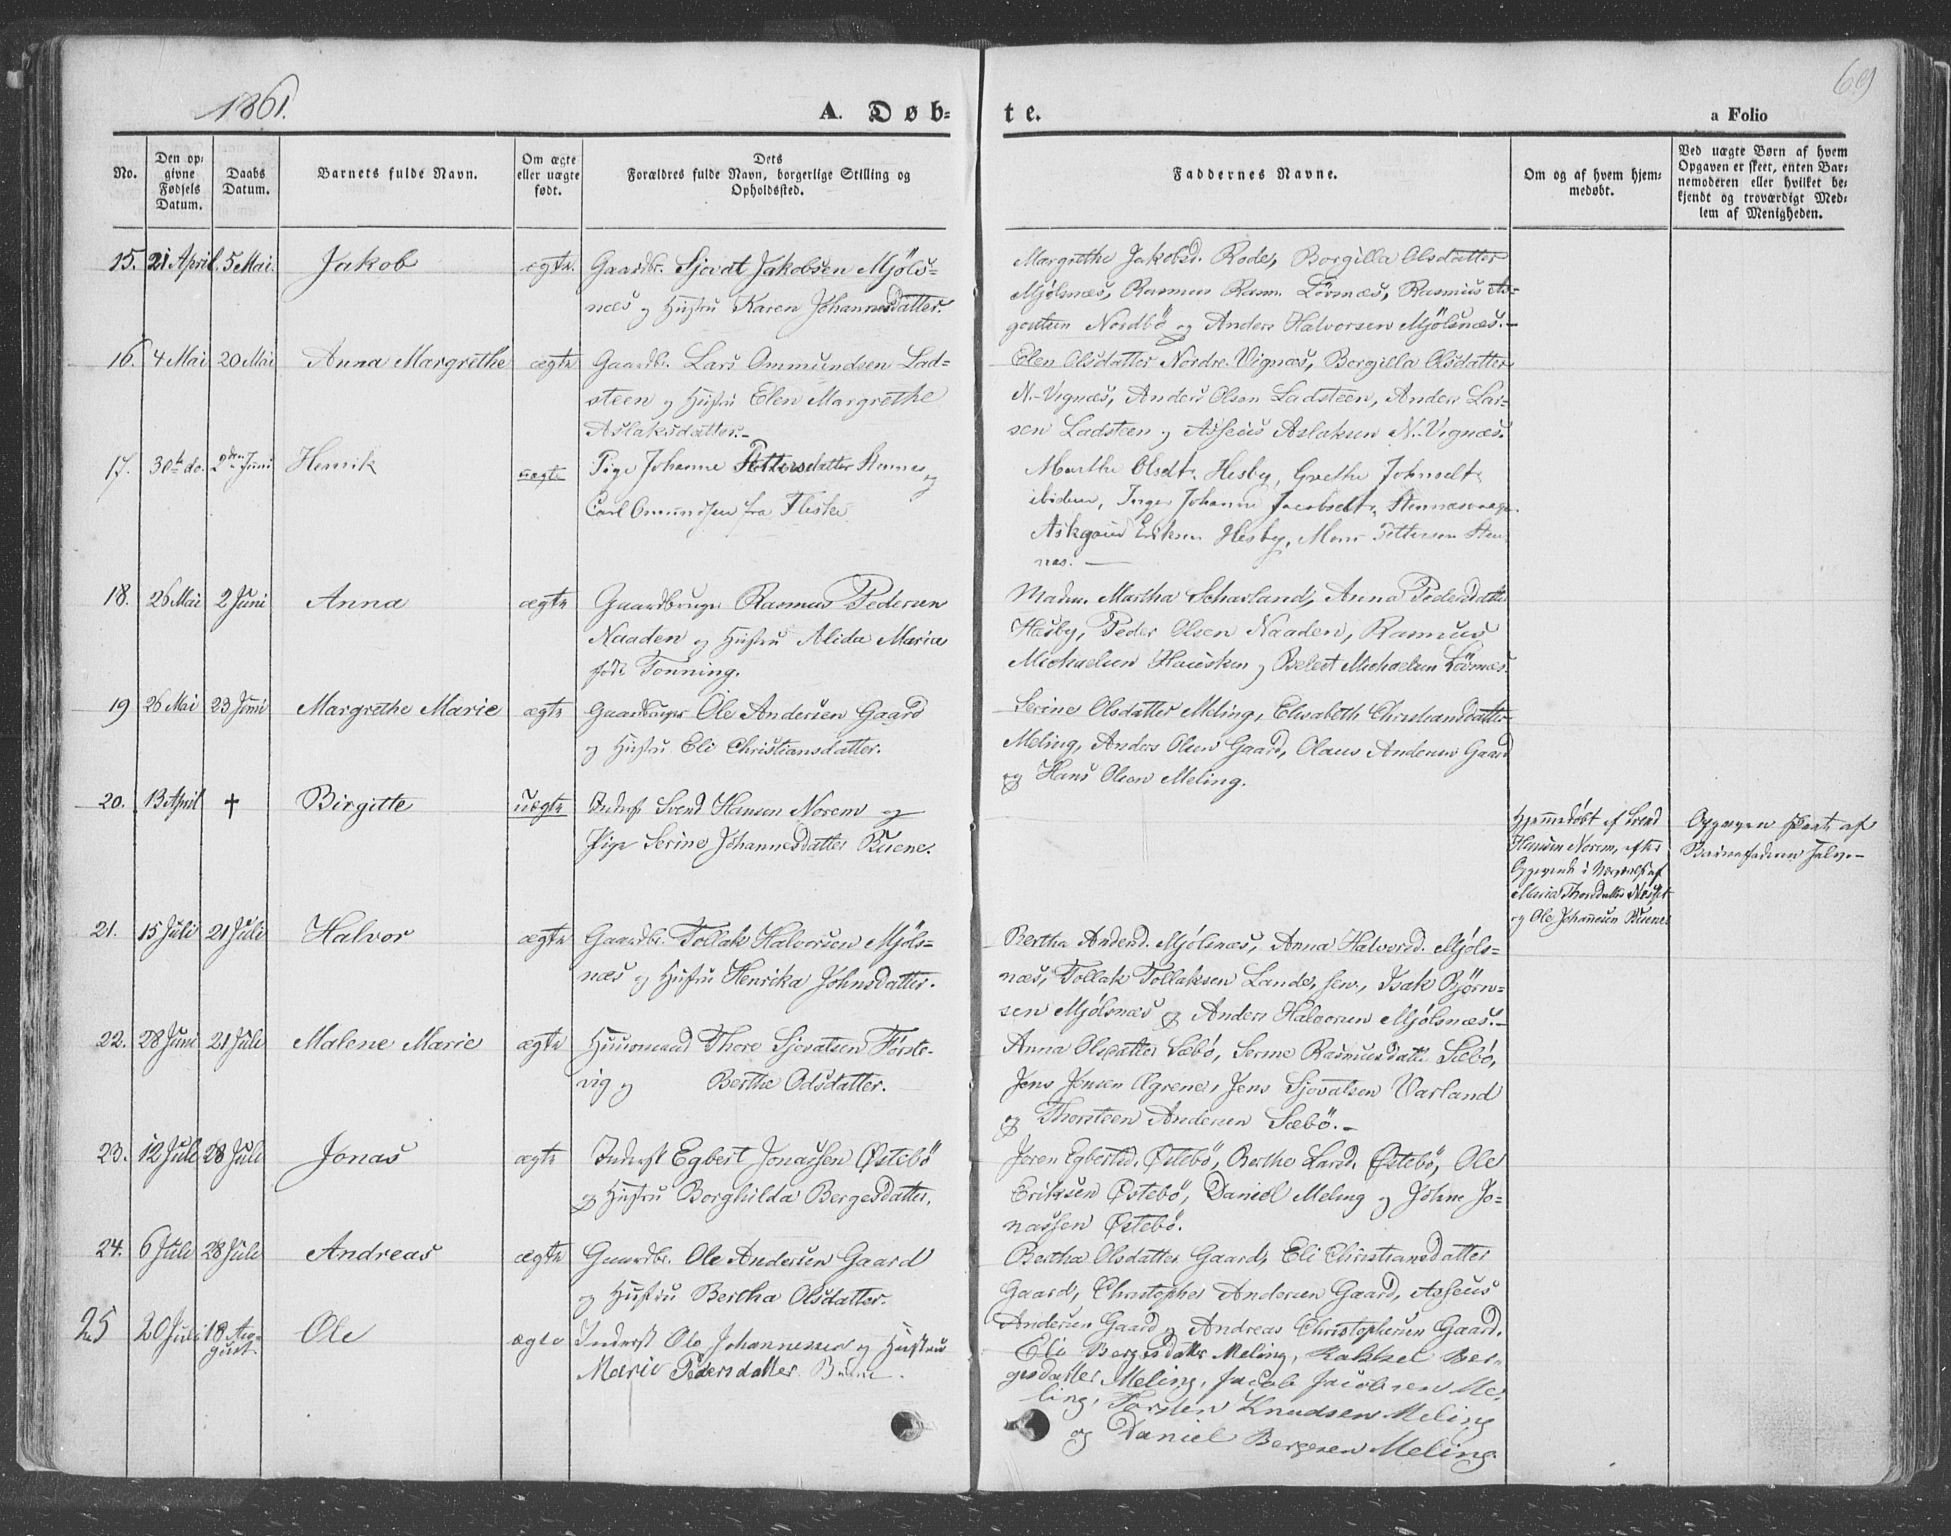 1861.
A. Døb-
te.
a Folio
69
No.
Den op-
givne
Fødsels
Datum.
Daabs
Datum.
Barnets fulde Navn.
Om ægte
eller uægte
født.
Dets
Forældres fulde Navn, borgerlige Stilling og
Opholdssted.
Faddernes Navne.
Om og af hvem hjem-
medøbt.
Ved uægte Børn af hvem
Opgaven er skeet, enten Bar-
nemoderen eller hvilket be-
kjendt og troværdigt Med-
lem af Menigheden.
15. 21 April. 5 Mai. Jakob ægte. Gaardbr. Sjovat Jakobsen Mjöls-
næs og Hustru Karen Johannesdatter.
Margrethe Jakobsd. Rode, Borgilla Olsdatter
Mjölsnæs, Rasmus Rasm. Lövnæs, Rasmus As-
goutsen Nordbö og Anders Halvorsen Mjölsnæs.-
16. 4 Mai 20 Mai Anna Margrethe ægte Gaardbr. Lars Ommundsen Lad-
steen og Hustru Elen Margrethe
Aslaksdatter.-
Elen Olsdatter Nordre-Vignæs, Borgilla Olsdatter
N.-Vignæs, Anders Olsen Ladsteen, Anders Lar-
sen Ladsteen og Asseus Aslaksen N.-Vignæs.
17. 30te do. 2den Juni Henrik uægte Pige Johanne Pettersdatter Stennes og
Carl Omundsen fra Fliske
Marthe Olsdt. Hesby, Grethe Johnsdt.
ibidem, Inger Johanne Jacobsdt.
Askgaut Eriksen Hesby, Mons Pettersen Sten-
nes. —
18. 26 Mai 2 Juni Anna ægte Gaardbruger Rasmus Pedersen
Naaden og Hustru Alida Maria
född Tonning.
Madm. Martha Schavland, Anna Pedersdatter
Hesby, Peder Olsen Naaden, Rasmus
Michaelsen Hausken og Michaelsen Lövnæs.
19 26 Mai 23 Juni Margrethe Marie ægte Gaardbruger Ole Andersen Gaard
og Hustru Eli Christiansdatter.
Serine Olsdatter Meling, Elisabeth Christiansdatter
Meling, Anders Olsen Gaard, Olaus Andersen Gaard
og Hans Olson Meling.
20. 13 April † Birgitte uægte Inderst Svend Hansen Norem og
Pige Serine Johannesdatter Buene.
Hjemmedøbt af Svend
Hansen Norem, efter
Opgivende i Nærværelse af
Maria Thorsdatter
og Ole Johannesen Buene
Opgaven skeet af
Barnefaderen selv.-
21. 15 Juli 21 Juli Halvor ægte Gaardbr. Tollak Halvorsen Mjöls-
næs og Hustru Henrika Johnsdatter.
Bertha Andersd. Mjölsnæs, Anna Halvorsd. Mjöls-
næs, Tollak Tollaksen Lande, sen., Isak Bjørn-
sen Mjölsnæs og Anders Halvorsen Mjölsnæs.-
22. 28 Juni 21 Juli Malene Marie ægte Huusmand Thore Sjovatsen Förste-
vig og Berthe Odsdatter.
Anna Olsdatter Sæbö, Serine Rasmusdatter Sæbö,
Jens Jensen Øgrene, Jens Sjovatsen Varland
og Thorsteen Andersen Sæbö.-
23. 12 Juli 28 Juli Jonas ægte Inderst Egbert Jonassen Østebö
og Hustru Borghilda Bergesdatter.
Jeren Egbertsd. Østebö, Berthe Larsd. Østebö, Ole
Eriksen Østebö, Daniel Meling og Johne Jo-
nassen Østebö.
24. 6 Juli 28 Juli Andreas ægte Gaardbr. Ole Andersen Gaard
og Hustru Bertha Olsdatter.
Bertha Olsdatter Gaard, Eli Christiansdatter
Gaard, Christopher Andersen Gaard, Asseus
Andersen Gaard og Andreas Christophersen Gaard.
25 20 Juli 18 Au-
gust Ole ægte Inderst Ole Johannessen og Hustru
Marie Pedersdatter Buene.
Eli Bergesdatter Meling, Rakkel Ber-
gesdatter Meling, Jacob Jacobsen Me-
ling, Torsten Knudsen Meling
og Daniel Bergesen Meling.